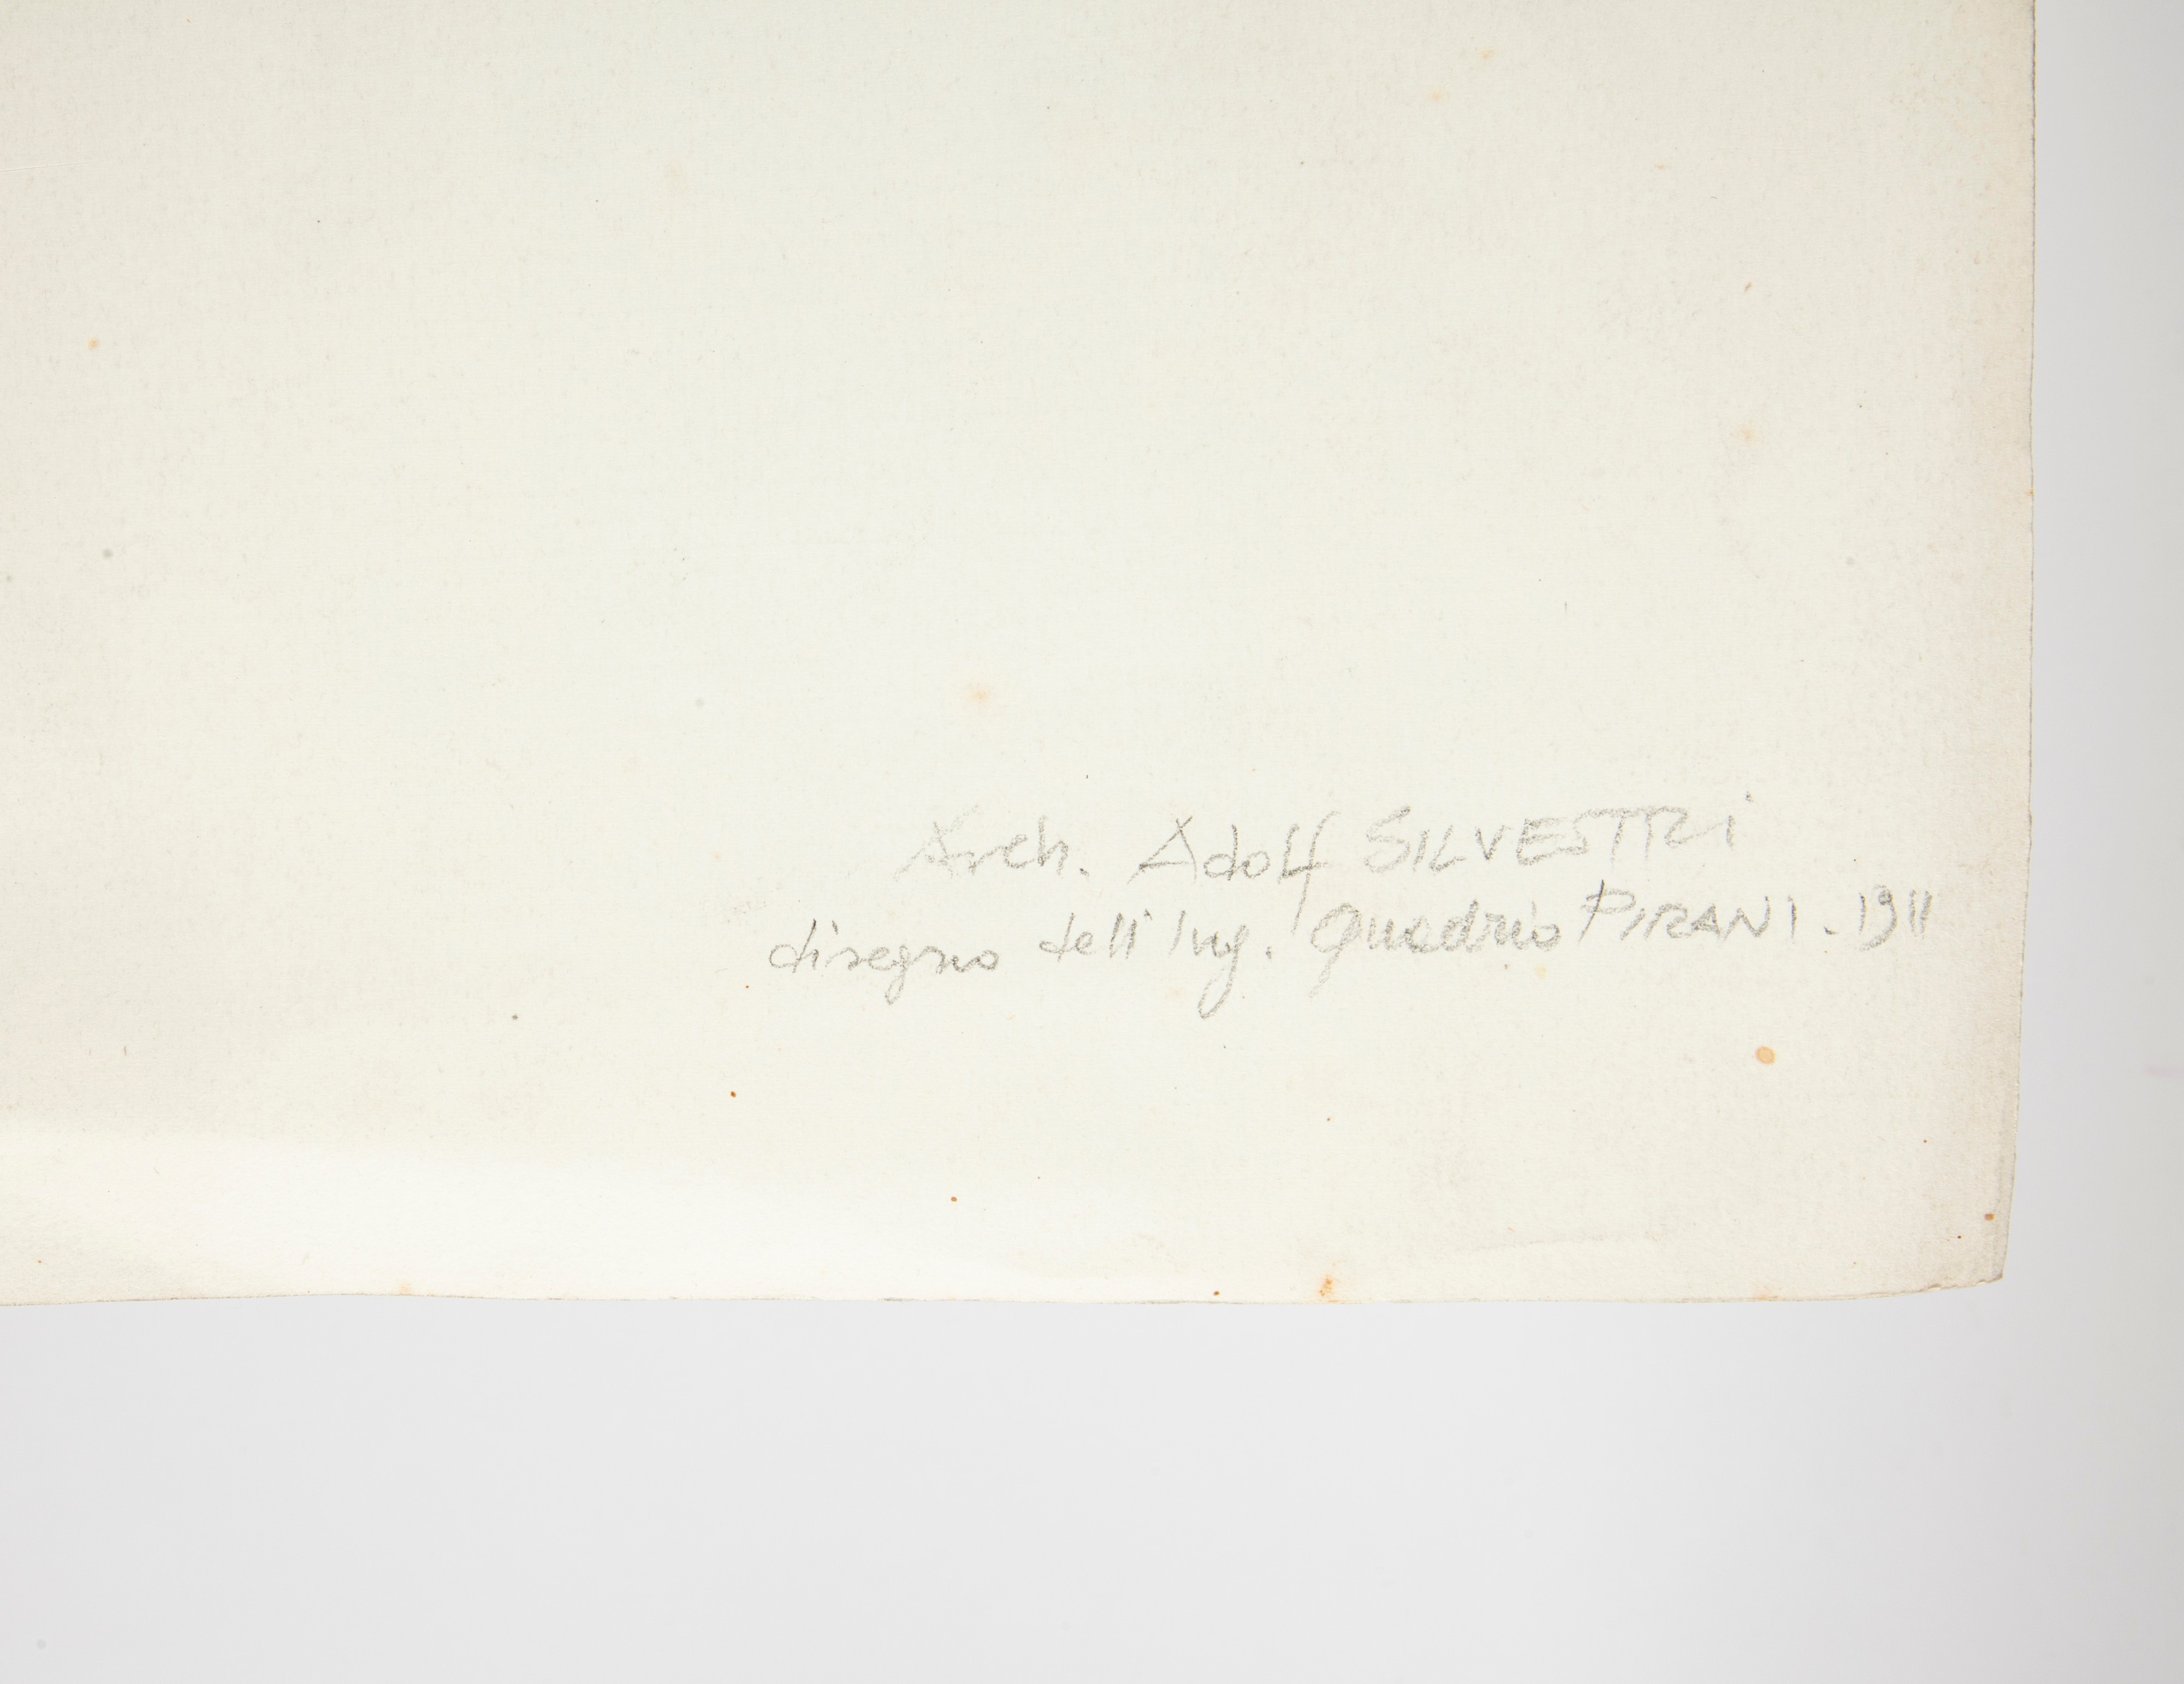 Arch. Adolf SILVESTRI
disegno dell'Ing. Quadrio PIRANI. 1911